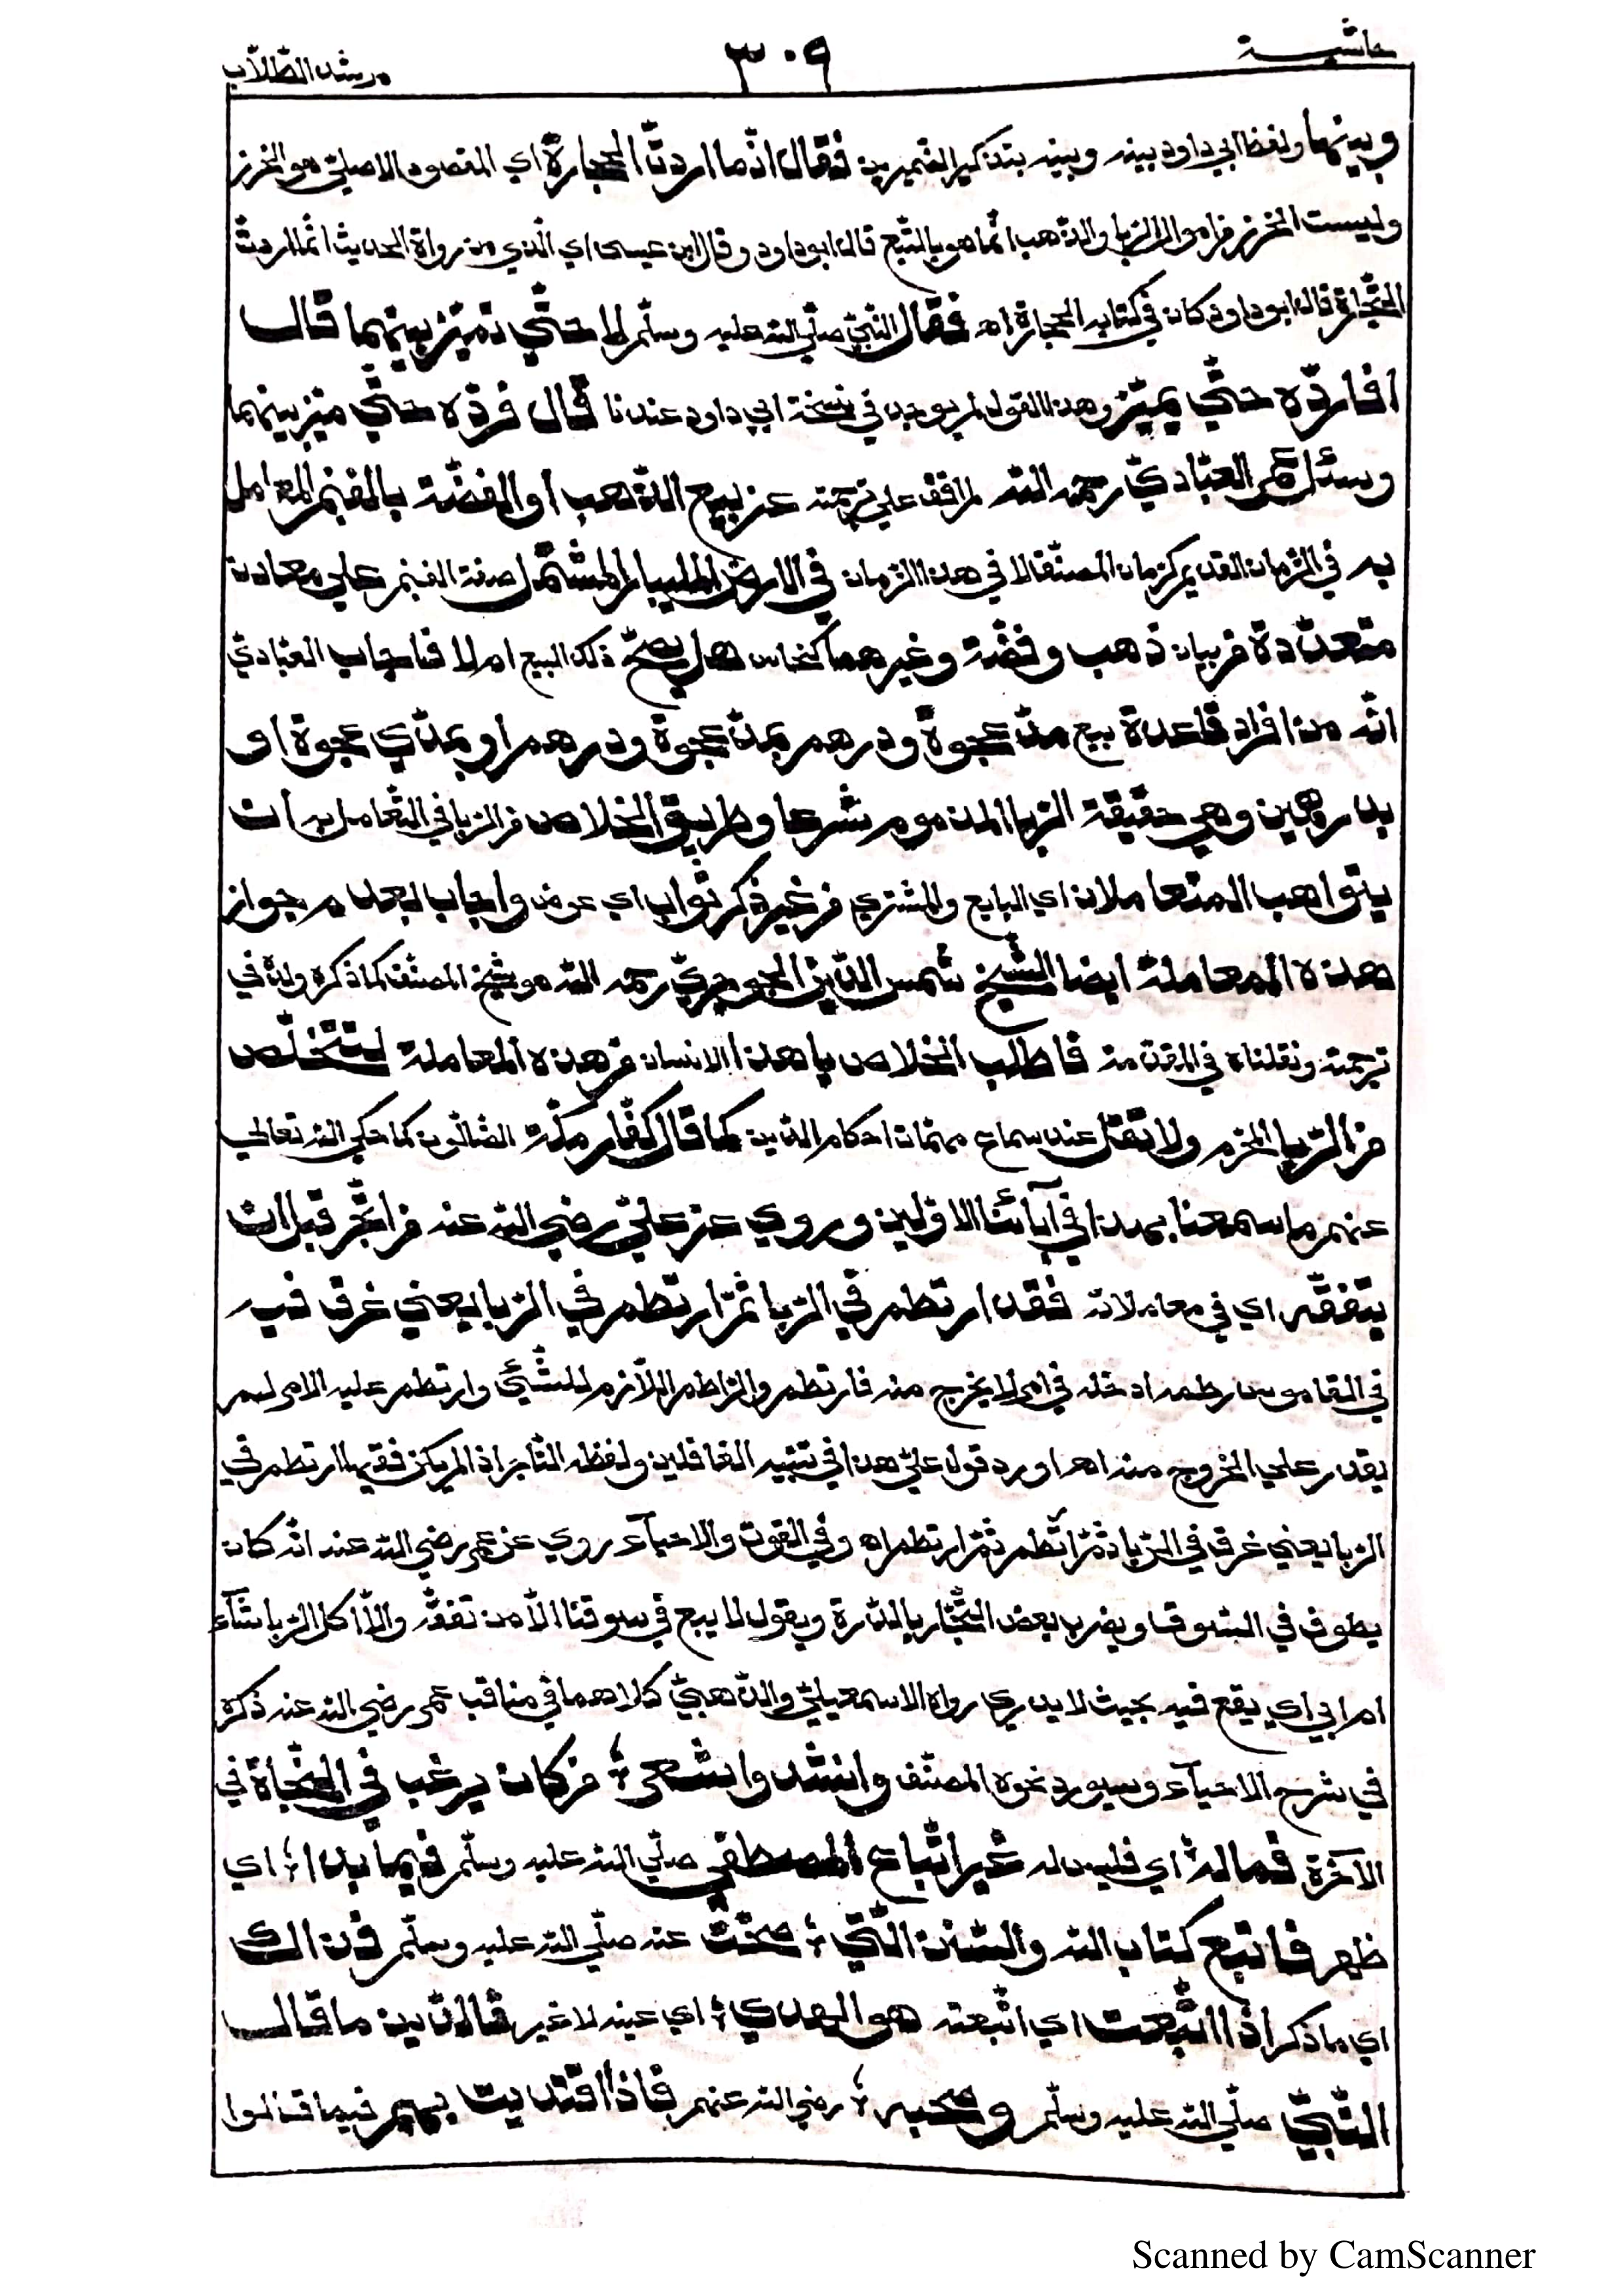 حاشية
٣٠٩
مرشد الطّلّاب
وبينهما ولفظ ابي داود بينه وبينه بتذكير الضميرين فقال انّما اردتّ الحجارة اي المقصود الاصليّ هو الخرز
وليست الخرز من اموال الربا والذّهب انّما هو بالتّبع قال ابوداود وقال ابن عيسى اي الّذي من رواة الحديث انّما اردتّ
التّجارة قال ابوداود كان في كتابه الحجارة اه فقال النّبيّ صلّي الله عليه وسلّم لا حتّي تميّز بينهما قال
افاردّه حتّي يميّز وهذا القول لم يوجد في نسخة ابي داود عندنا قال فردّه حتّي ميّز بينهما
وسئل عمر العبّاديّ رحمه الله لم اقف علي ترجمته عن بيع الذّهب او الفضّة بالفنم المعامل
به في الزّمان القديم كزمان المصنّف لا في هذا الزمان في الارض المليبار المشتمل صفة الفنم علي معادن
متعدّدة من بيان ذهب وفضّة وغيرهما كنحاس هل يصحّ ذلك البيع ام لا فاجاب العبّاديّ
انّه من افراد قاعدة بيع مدّ عجوة ودرهم بمدّ عجوة ودرهم او بمدّي عجوة او
بدرهمين وهي حقيقة الربا المذموم شرعا وطريق الخلاص من الربا في التّعامل به ان
يتواهب المتعاملان اي البايع والمشتري من غير ذكر ثواب اي عوض واجاب بعدم جواز
هذه المعاملة ايضا الشّيخ شمس الدّين الجوجريّ رحمه الله هو شيخ المصنّف كما ذكره ولده في
ترجمته ونقلناه في المقدّمة فاطلب الخلاص يا هذا الانسان من هذه المعاملة لتتخلّص
من الرّبا المحرّم ولا تقل عند سماع مهمّات احكام الدّين كما قال كفّار مكّة الضالّون كما حكي الله تعالي
عنهم ما سمعنا بهذا في آبائنا الاوّلين وروي عن عليّ رضي الله عنه من اتّجر قبل ان
يتفقّه اي في معاملاته فقد ارتطم في الرّبا ثمّ ارتطم في الربا يعني غرق فيه
في القاموس رطمه ادخله في امر لا يخرج منه فارتطم والرّاطم اللّازم للشّئي وارتطم عليه الامر لم
يقدر علي الخروج منه اه اورد قول عليّ هذا في تنبيه الغافلين ولفظه التّاجر اذا لم يكن فقيها ارتطم في
الربا يعني غرق في الرّبا ثمّ ارتطم ثمّ ارتطم اه وفي القوت والاحيآء روي عن عمر رضي الله عنه انّه كان
يطوف في السّوق ويضرب بعض التّجّار بالدّرة ويقول لا يبع في سوقنا الّا من تفقّه والّا اكل الربا شآء
ام ابي اي يقع فيه بحيث لا يدري رواه الاسمعيليّ والذّهبيّ كلاهما في مناقب عمر رضي الله عنه ذكره
في شرح الاحيآء وسيورد نحوه المصنّف وانشد وا شعر ؛ من كان يرغب في النّجاة في
الآخرة فماله ؛ اي فليس له غير اتّباع المصطفي صلّي الله عليه وسلّم فيما بدا ؛ اي
ظهر فاتبع كتاب الله والسّنن الّتي ؛ صحّت عنه صلّي الله عليه وسلّم فذالك
اي ما ذكر اذا اتّبعت اي اتّبعته هو الهدي ؛ اي عينه لا غير فالدّين ما قال
النّبيّ صلّي الله عليه وسلّم وصحبه ؛ رضي الله عنهم فاذا اقتديت بهم فيما قالوا
Scanned by CamScanner